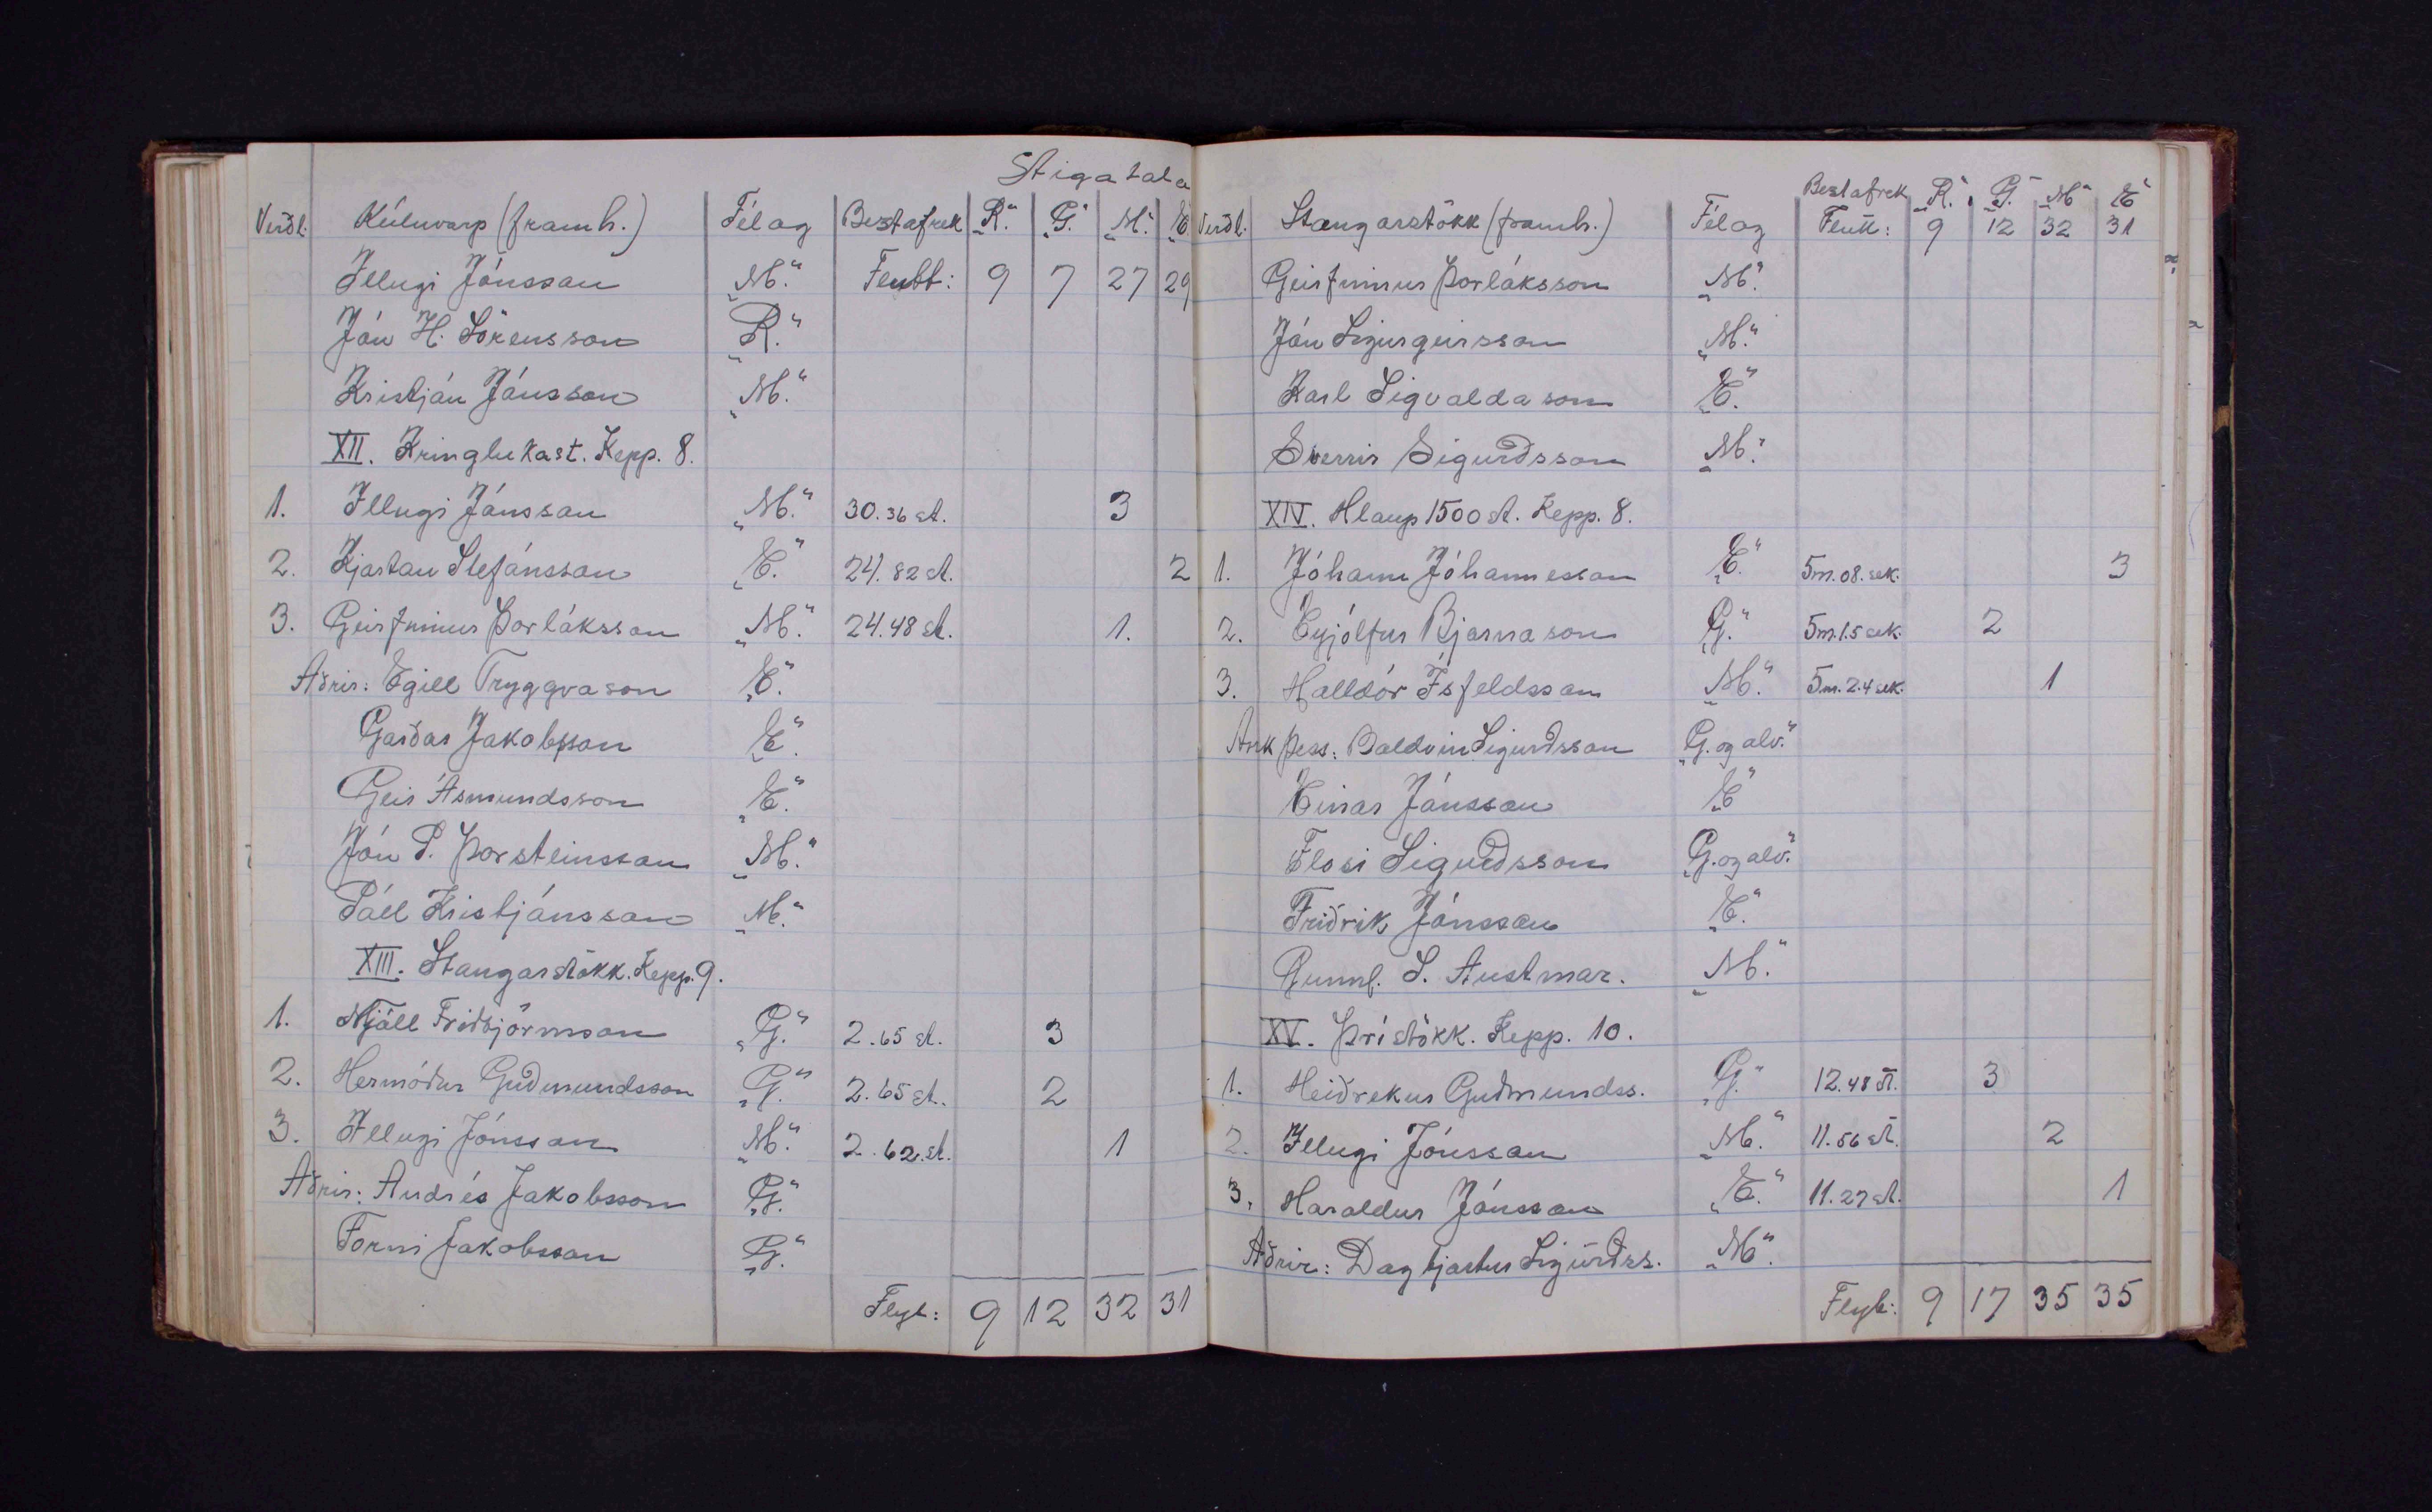 Stigatala
Verðl. Kúluvarp (framh.) Félag Bestafrek „R." „G." „M." „E"
Illugi Jónsson „M." Flutt: 9 7 27 29
Jón H. Sörensson „R."
Kristján Jónsson „M."
XII. Kringlukast. Kepp. 8.
1. Illugi Jónsson „M." 30.36 st. 3
2. Kjartan Stefánsson „E." 24.82 st. 2
3. Geirfinnur Þorláksson „M." 24.48 st. 1.
Aðrir: Egill Tryggvason „E."
Garðar Jakobsson „E."
Geir Ásmundsson „E."
Jón P. Þorsteinsson „M."
Páll Kristjánsson „M."
XIII. Stangarstökk. Kepp. 9.
1. Njáll Friðbjörnsson „G." 2.65 st. 3
2. Hermóður Guðmundsson „G." 2.65 st. 2
3. Illugi Jónsson „M." 2.62 st. 1
Aðrir: Andrés Jakobsson „G."
Forni Jakobsson „G."
Flyt: 9 12 32 31
Verðl. Stangarstökk (framh.) Félag Bestafrek „R." „G." „M" „E"
Flutt: 9 12 32 31
Geirfinnur Þorláksson „M."
Jón Sigurgeirsson „M."
Karl Sigvaldason „E."
Sverrir Sigurðsson „M."
XIV. Hlaup 1500 st. Kepp. 8.
1. Jóhann Jóhannesson „E." 5m. 08. sek. 3
2. Eyjólfur Bjarnason „G." 5m. 1.5 sek. 2
3. Halldór Ísfeldsson „M." 5m. 2.4 sek. 1
Auk þess: Baldvin Sigurðsson „G. og alv."
Einar Jónsson „E"
Flosi Sigurðsson „G. og alv."
Friðrik Jónsson „E."
Gunnl. S. Austmar. „M."
XV. Þrístökk. Kepp. 10.
1. Heiðrekur Guðmundss. „G." 12.48 st. 3
2. Illugi Jónsson „M." 11.56 st. 2
3. Haraldur Jónsson „E." 11.27 st. 1
Aðrir: Dagbjartur Sigurðss. „M."
Flyt: 9 17 35 35